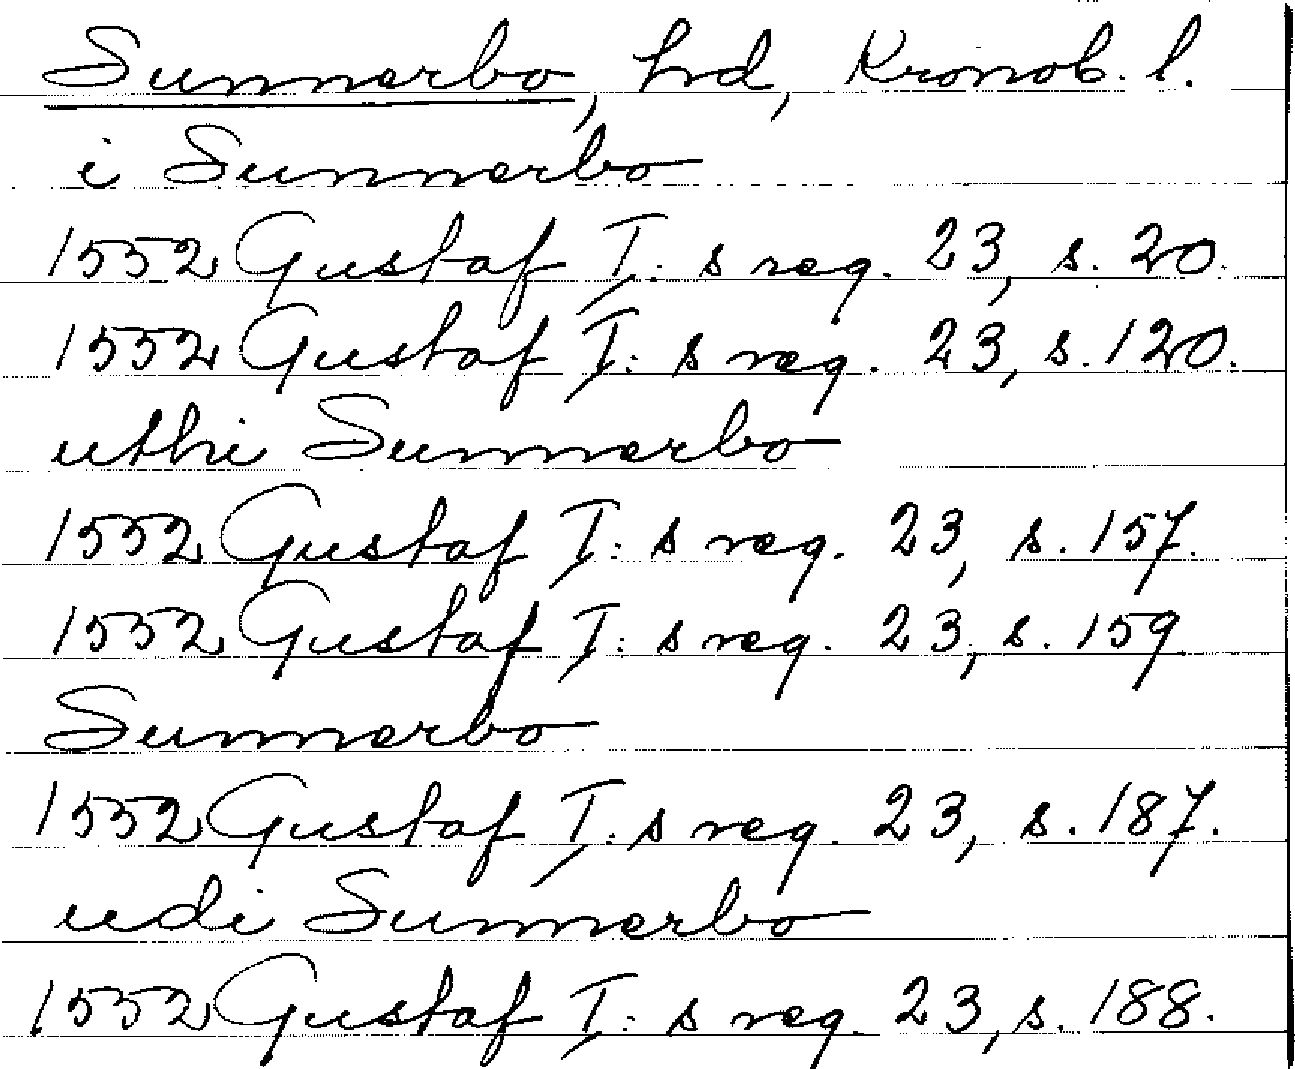 Sunnerbo, hrd, Kronob. l.
i Sunnerbo
1552 Gustaf I: s reg. 23, s. 20.
1552 Gustaf I: s reg. 23, s. 120.
uthi Sunnerbo
1552 Gustaf I: s reg. 23, s. 157.
1552 Gustaf I: s reg. 23, s. 159
Sunnerbo
1552 Gustaf I: s reg. 23, s. 187.
udi Sunnerbo
1552 Gustaf I: s reg. 23, s. 188.